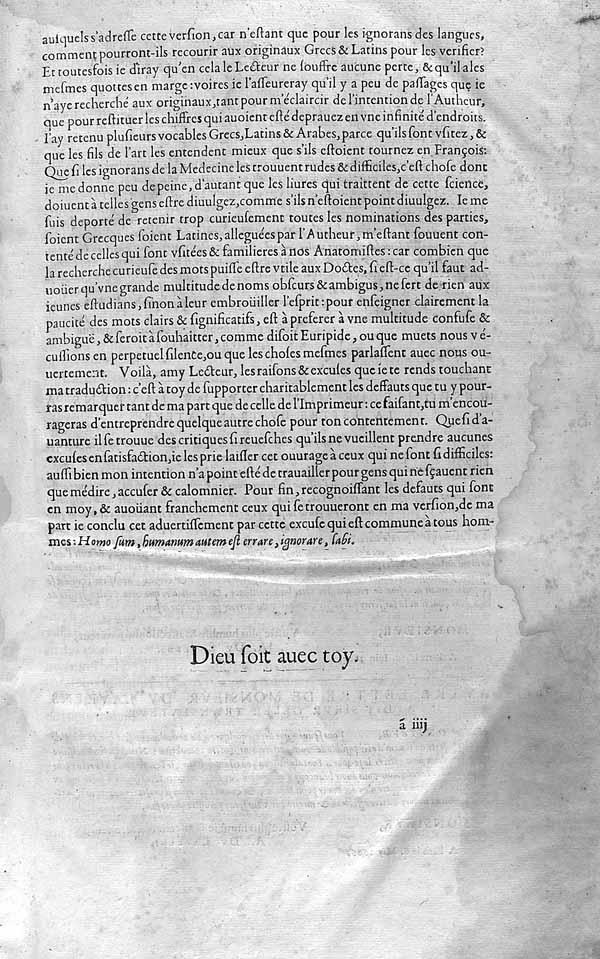 auſquels s'adreſſe cette verſion, car n'eſtant que pour les ignorans des langues,
comment pourront-ils recourir aux originaux Grecs & Latins pour les verifier?
Et toutesfois ie diray qu'en cela le Lecteur ne ſouffre aucune perte, & qu'il a les
meſmes quottes en marge: voires ie l'aſſeureray qu'il y a peu de paſſages que ie
n'aye recherché aux originaux, tant pour m'éclaircir de l'intention de l'Autheur,
que pour reſtituer les chiffres qui auoient eſté deprauez en vne infinité d'endroits.
I'ay retenu pluſieurs vocables Grecs, Latins & Arabes, parce qu'ils ſont vſitez, &
que les fils de l'art les entendent mieux que s'ils eſtoient tournez en François:
Que ſi les ignorans de la Medecine les trouuent rudes & difficiles, c'eſt choſe dont
ie me donne peu de peine, d'autant que les liures qui traittent de cette ſcience,
doiuent à telles gens eſtre diuulgez, comme s'ils n'eſtoient point diuulgez. Ie me
ſuis deporté de retenir trop curieuſement toutes les nominations des parties,
ſoient Grecques ſoient Latines, alleguées par l'Autheur, m'eſtant ſouuent con-
tenté de celles qui ſont vſitées & familieres à nos Anatomiſtes: car combien que
la recherche curieuſe des mots puiſſe eſtre vtile aux Doctes, ſi eſt-ce qu'il faut ad-
uoüer qu'vne grande multitude de noms obſcurs & ambigus, ne ſert de rien aux
ieunes eſtudians, ſinon à leur embroüiller l'eſprit: pour enſeigner clairement la
paucité des mots clairs & ſignificatifs, eſt à preferer à vne multitude confuſe &
ambiguë, & ſeroit à ſouhaitter, comme diſoit Euripide, ou que muets nous vé-
cuſſions en perpetuel ſilence, ou que les choſes meſmes parlaſſent auec nous ou-
uertement. Voilà, amy Lecteur, les raiſons & excuſes que ie te rends touchant
ma traduction: c'eſt à toy de ſupporter charitablement les deffauts que tu y pour-
ras remarquer tant de ma part que de celle de l'Imprimeur: ce faiſant, tu m'encou-
rageras d'entreprendre quelque autre choſe pour ton contentement. Que ſi d'a-
uanture il ſe trouue des critiques ſi reueſches qu'ils ne vueillent prendre aucunes
excuſes en ſatisfaction, ie les prie laiſſer cet ouurage à ceux qui ne ſont ſi difficiles:
auſſi bien mon intention n'a point eſté de trauailler pour gens qui ne ſçauent rien
que médire, accuſer & calomnier. Pour fin, recognoiſſant les defauts qui ſont
en moy, & auoüant franchement ceux qui ſe trouueront en ma verſion, de ma
part ie conclu cet aduertiſſement par cette excuſe qui eſt commune à tous hom-
mes: Homo ſum, humanum autem eſt errare, ignorare, labi.
Dieu ſoit auec toy.
á iiij